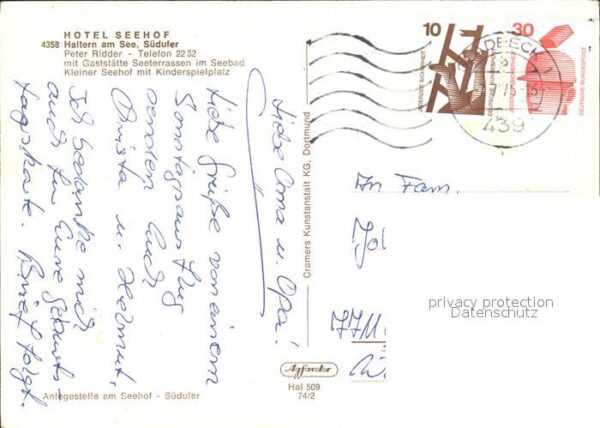 HOTEL SEEHOF
4358 Haltern am See, Südufer
Peter Ridder - Telefon 22 32
mit Gaststätte Seeterrassen im Seebad
Kleiner Seehof mit Kinderspielplatz
10
30
DEUTSCHE BUNDESPOST
439
Liebe Oma u. Opa!
Liebe Grüße von einem
Sonntagsausflug
senden Euch
Christa u. Helmut.
Ich bedanke mich
auch für Eure Geburts-
tagskarte. Brief folgt.
Cramers Kunstanstalt KG, Dortmund
An Fam.
771
privacy protection
Datenschutz
Agfacolor
Hal 509
74/2
Anlegestelle am Seehof - Südufer